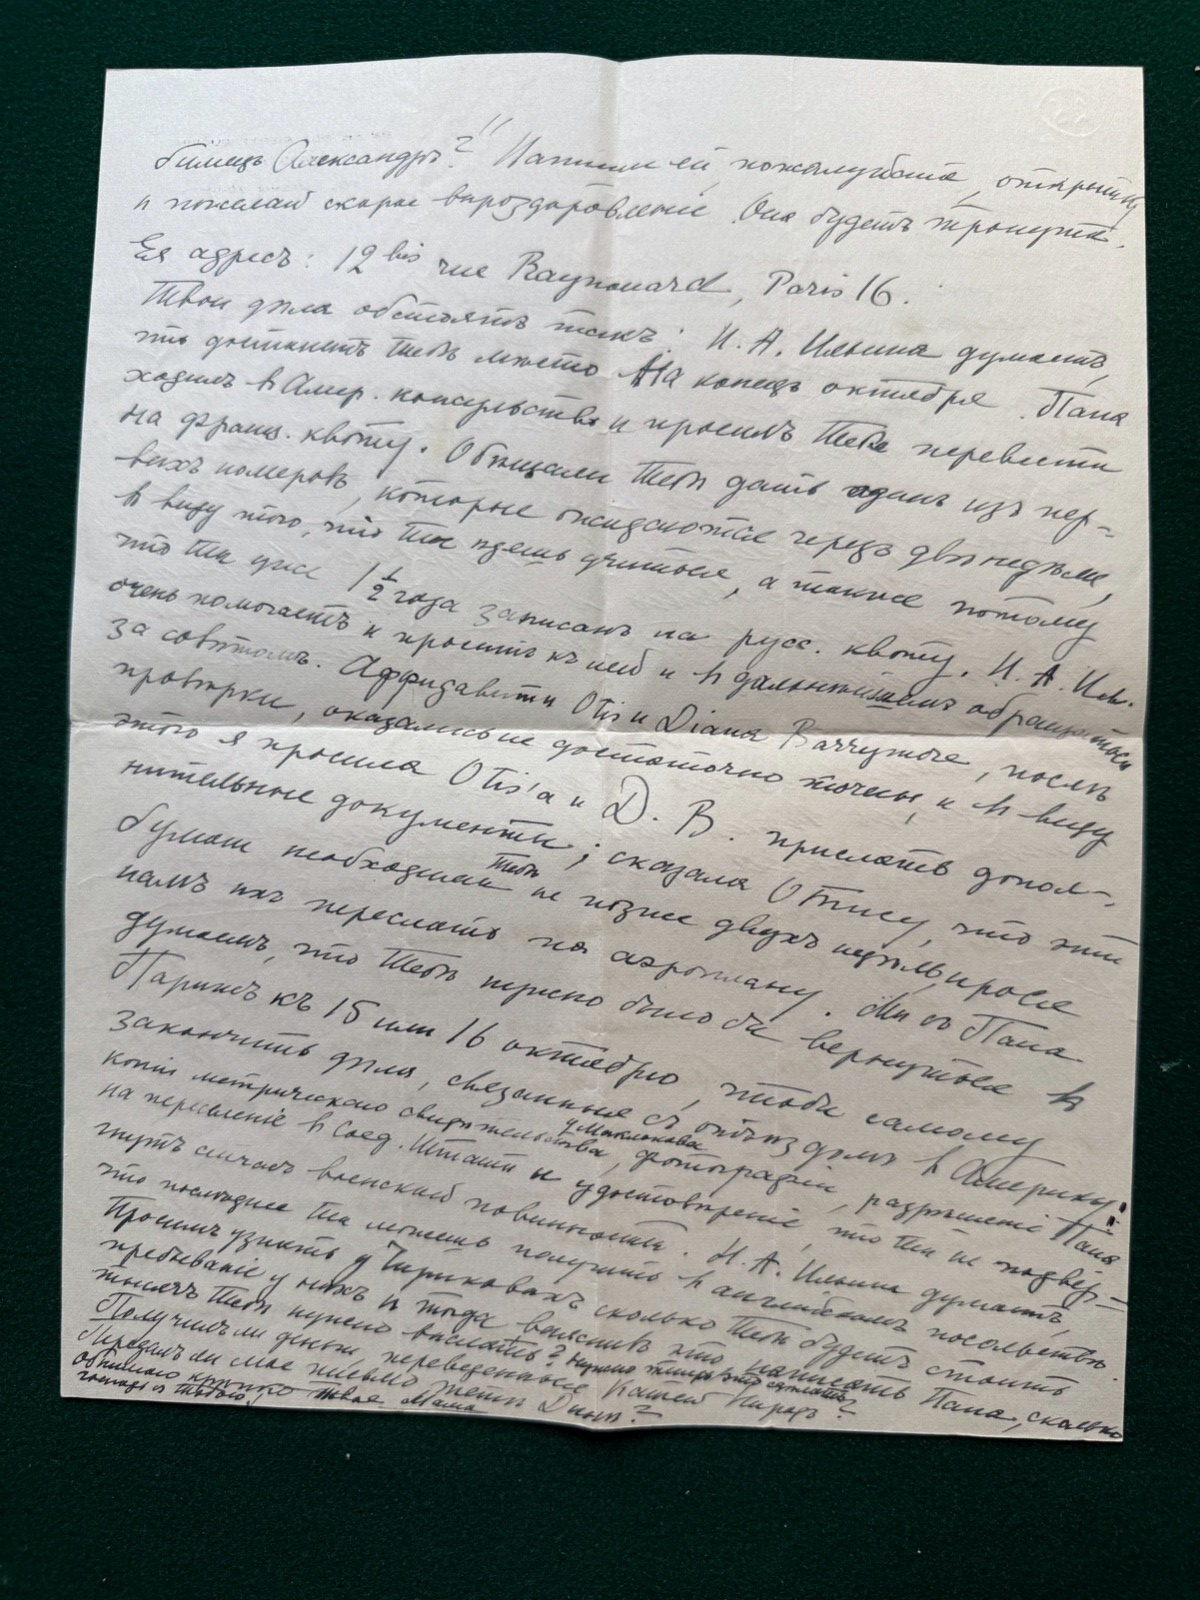 бимецъ Александръ?" Напиши ей, пожалуйста, открытку
и пожелай скорое выроздоровленіе. Она будетъ тронута.
Ея адресъ: 12 bis rue Raynouard, Paris 16.
Твои дѣла обстоятъ такъ: И. А. Ильина думаетъ,
что достанетъ тебѣ мѣсто на конецъ октября. Папа
ходилъ в Амер. консульство и просилъ тебя перевести
на франц. квоту. Обѣщали тебѣ дать одинъ изъ пер-
выхъ номеровъ, которые ожидаются черезъ двѣ недѣли,
в виду того, что ты ѣдешь учиться, а также потому
что ты уже 1 1/2 года записанъ на русс. квоту. И. А. Иль.
очень помогаетъ и проситъ къ ней и в дальнѣйшемъ обращаться
за совѣтомъ. Аффидавиты Otis и Diana Barrymore, послѣ
провѣрки, оказались не достаточно точны, и в виду
этого я просила Otis'a и D. B. прислать допол-
нительные документы; сказала Отису, что эти
бумаги необходимы тебѣ не позже двухъ недѣль, прося
намъ ихъ переслать по аэроплану. Мы съ Папа
думаемъ, что тебѣ нужно было бы вернуться в
Парижъ къ 15 или 16 октябрю, чтобы самому
закончить дѣла, связанныя съ отъѣздомъ в Америку:
копія метрическаго свидѣтельства, фотографіи, разрѣшеніе Папа
у Маклакова
на переселеніе в Соед. Штаты и удостовѣреніе, что ты не подвер-
гнутъ англійской воинской повинности. И. А. Ильина думаетъ,
что последнее ты можешь получить в англійскомъ посольствѣ.
Просимъ узнать у Чириковыхъ сколько тебѣ будетъ стоить
пребываніе у нихъ и тогда выяснивъ это написать Папа, сколько
тысячъ тебѣ нужно выслать? Нужно теперь это сдѣлать?
Получилъ ли деньги переведенные Кашей Нирадъ?
Передалъ ли мое письмо тети Дины?
Обнимаю крѣпко твоя Мама
Господь съ тобою!